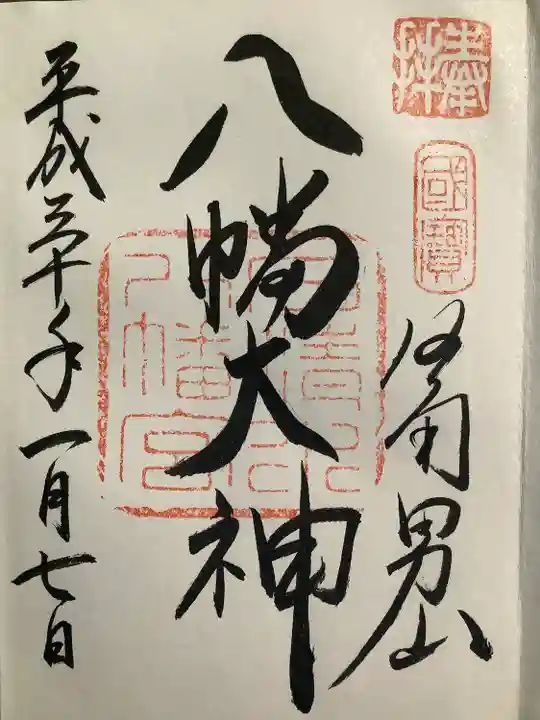 奉拝
國寳
洛南男山
八幡大神
石清水
八幡宮
平成三十年一月七日